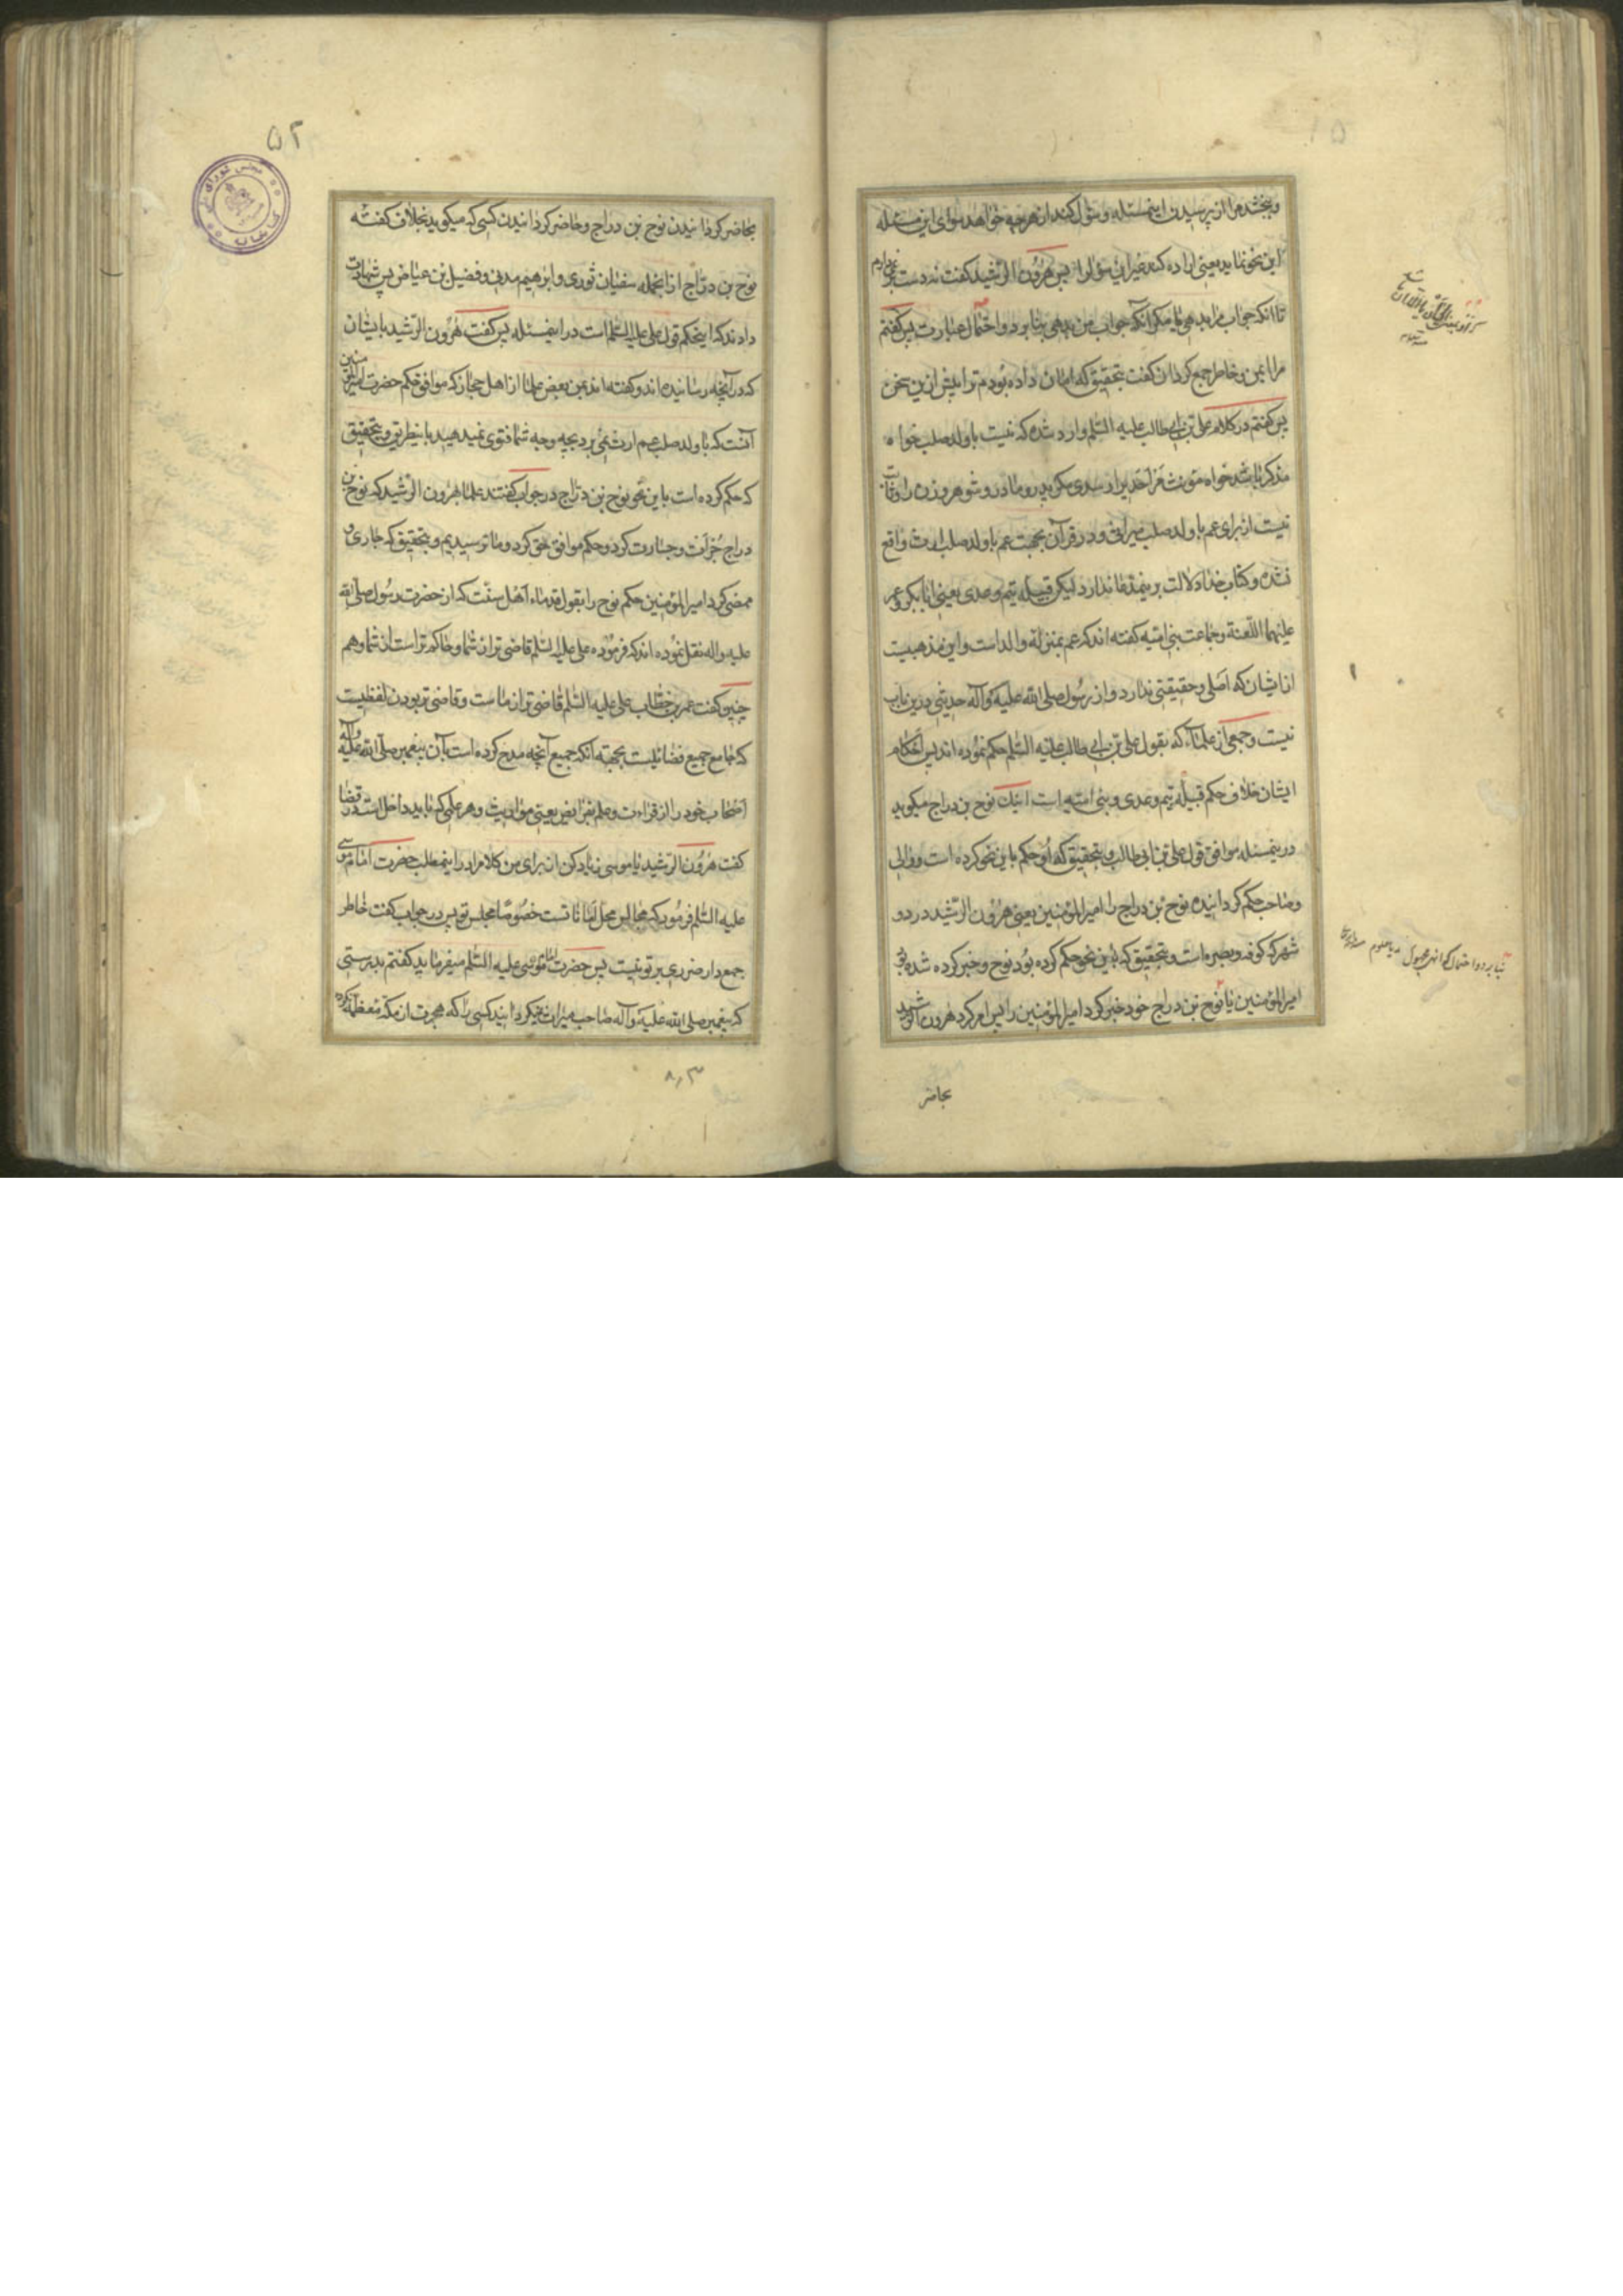 و ببخشد مرا از پرسیدن اینمسئله و سؤال کند از هر چه خواهد سوای این مسئله
این نحو نماید یعنی اراده کند غیر این سؤال را پس هٰرُون الرّشید گفت نه دست بر نمی دارم
تا آنکه جواب مرا بدهی یا مکر آنکه جواب من بدهی بنا بر دو احتمال عبارت پس گفتم
مرا ایمن و خاطر جمع کردان گفت بتحقیق که امان داده بودم ترا پیش ازین سخن
پس گفتم در کلام علی بن ابی طالب علیه السّلم وارد شده که نیست با ولد صلب خواه
مذکر باشد خواه مؤنث فراحدیرا از سدی مکر پدر و مادر و شوهر و زن را و ثابت
نیست از برای عم با ولد صلب میراثی و در قرآن بجهت عم با ولد صلب ارث واقع
نشده و کتاب خدا دلالت بر ینمدّعا ندارد لیکن قبیله تیم و عدی یعنی ابابکر و عمر
علیهما اللّعنة و جماعت بنی امیّه گفته اند که عم بمنزلة والد است و این مذهبیست
از ایشان که اصلی و حقیقتی ندارد و از رسُول صلی الله علیه وآله حدیثی درین باب
نیست و جمعی از علماء که بقول علی بن ابی طالب علیه السّلم حکم نموده اند پس احکام
ایشان خلاف حکم قبیله تیم و عدی و بنی امیّه است اینك نوح بن دراج میکوید
درینمسئله موافق قول علی بن ابی طالب و بتحقیق که او حکم باین نحو کرده است و والی
و صاحب حکم کردانیده نوح بن دراج را امیرالمؤمنین یعنی هرُون الرّشید در دو
شهر که کوفه و بصره است و بتحقیق که باین نحو حکم کرده بود نوح و خبر کرده شده بود
امیرالمؤمنین یا نوح بن دراج خود خبر کرد امیرالمؤمنین را پس امر کرد هرون الرّشید
بحاضر
بنا بر دو احتمال که انهی مجهول یا معلوم
۵۲
بحاضر کردانیدن نوح بن دراج و حاضر کردانیدن کسی که میکوید بخلاف کفته
نوح بن درّاج از انجمله سفیان ثوری و ابرهیم مدنی و فضیل بن عیاض پس شهادت
دادند که اینحکم قول علی علیه السّلم است در اینمسئله پس گفت هٰرُون الرّشید بایشان
که در آنچه رسانیده اند و کفته اند بمن بعض علما از اهل حجاز که موافق حکم حضرت امیرالمؤمنین
آنست که با ولد صلب عم ارث نمی برد بچه وجه شما فتوی نمیدهید باینطریق و بتحقیق
که حکم کرده است باین نحو نوح بن درّاج در جواب کفتند علما بهرون الرّشید که نوح بن
دراج جُرأت و جسارت کرد و حکم موافق حق کرد و ما ترسیدیم و بتحقیق که جاری و
ممضی کرد امیرالمؤمنین حکم نوح را بقول قدماء اهل سنّت که از حضرت رسُول صلی الله
علیه و اله نقل نموده اند که فرموده علی علیه السّلم قاضی تر از شما و حاکم تر است از شما و هم
چنین گفت عمر بن خطاب علی علیه السّلم قاضی تر از ماست و قاضی تر بودن لفظیست
که جامع جمیع فضائلیست بجهته آنکه جمیع آنچه مدح کرده است بآن پیغمبر صلّی الله علیه واله
اصحاب خود را از قراءت و علم بفرایض یعنی مواریث و هر علمی که باید داخلست در قضا
گفت هٰرُون الرّشید یا موسی زیاد کن از برای من کلام را در اینمطلب حضرت امام موسی
علیه السّلم فرمُود که مجالس محل اماناتست خصُوصًا مجلس تو پس در جواب گفت خاطر
جمع دار ضرری بر تو نیست پس حضرت امام موسی علیه السّلم میفرماید کفتم بدرستی
که پیغمبر صلی الله علیه وآله صاحب میراث نمیکردانید کسی را که هجرت از مکّه مُعظّمه نکرد